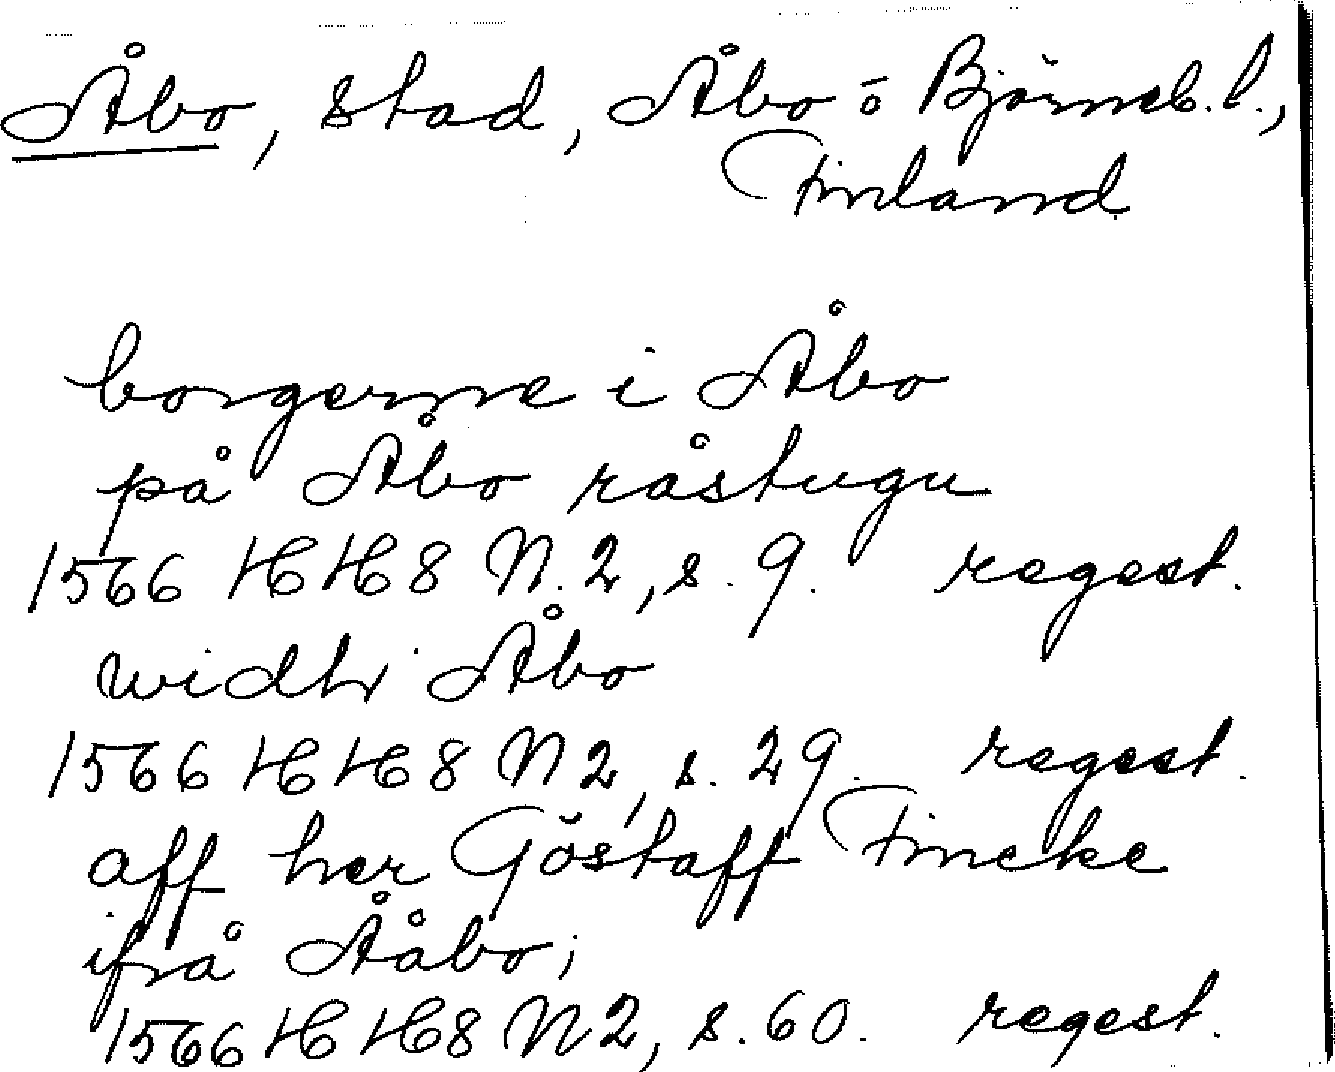 Åbo, stad, Åbo o Björneb. l.,
Finland
borgerne i Åbo
på Åbo råstugu
1566 HH8 N. 2, s. 9. regest.
widh Åbo
1566 HH8 N 2, s. 29. regest.
aff her Göstaff Fincke
ifrå Ååbo;
1566 HH8 N 2, s. 60. regest.